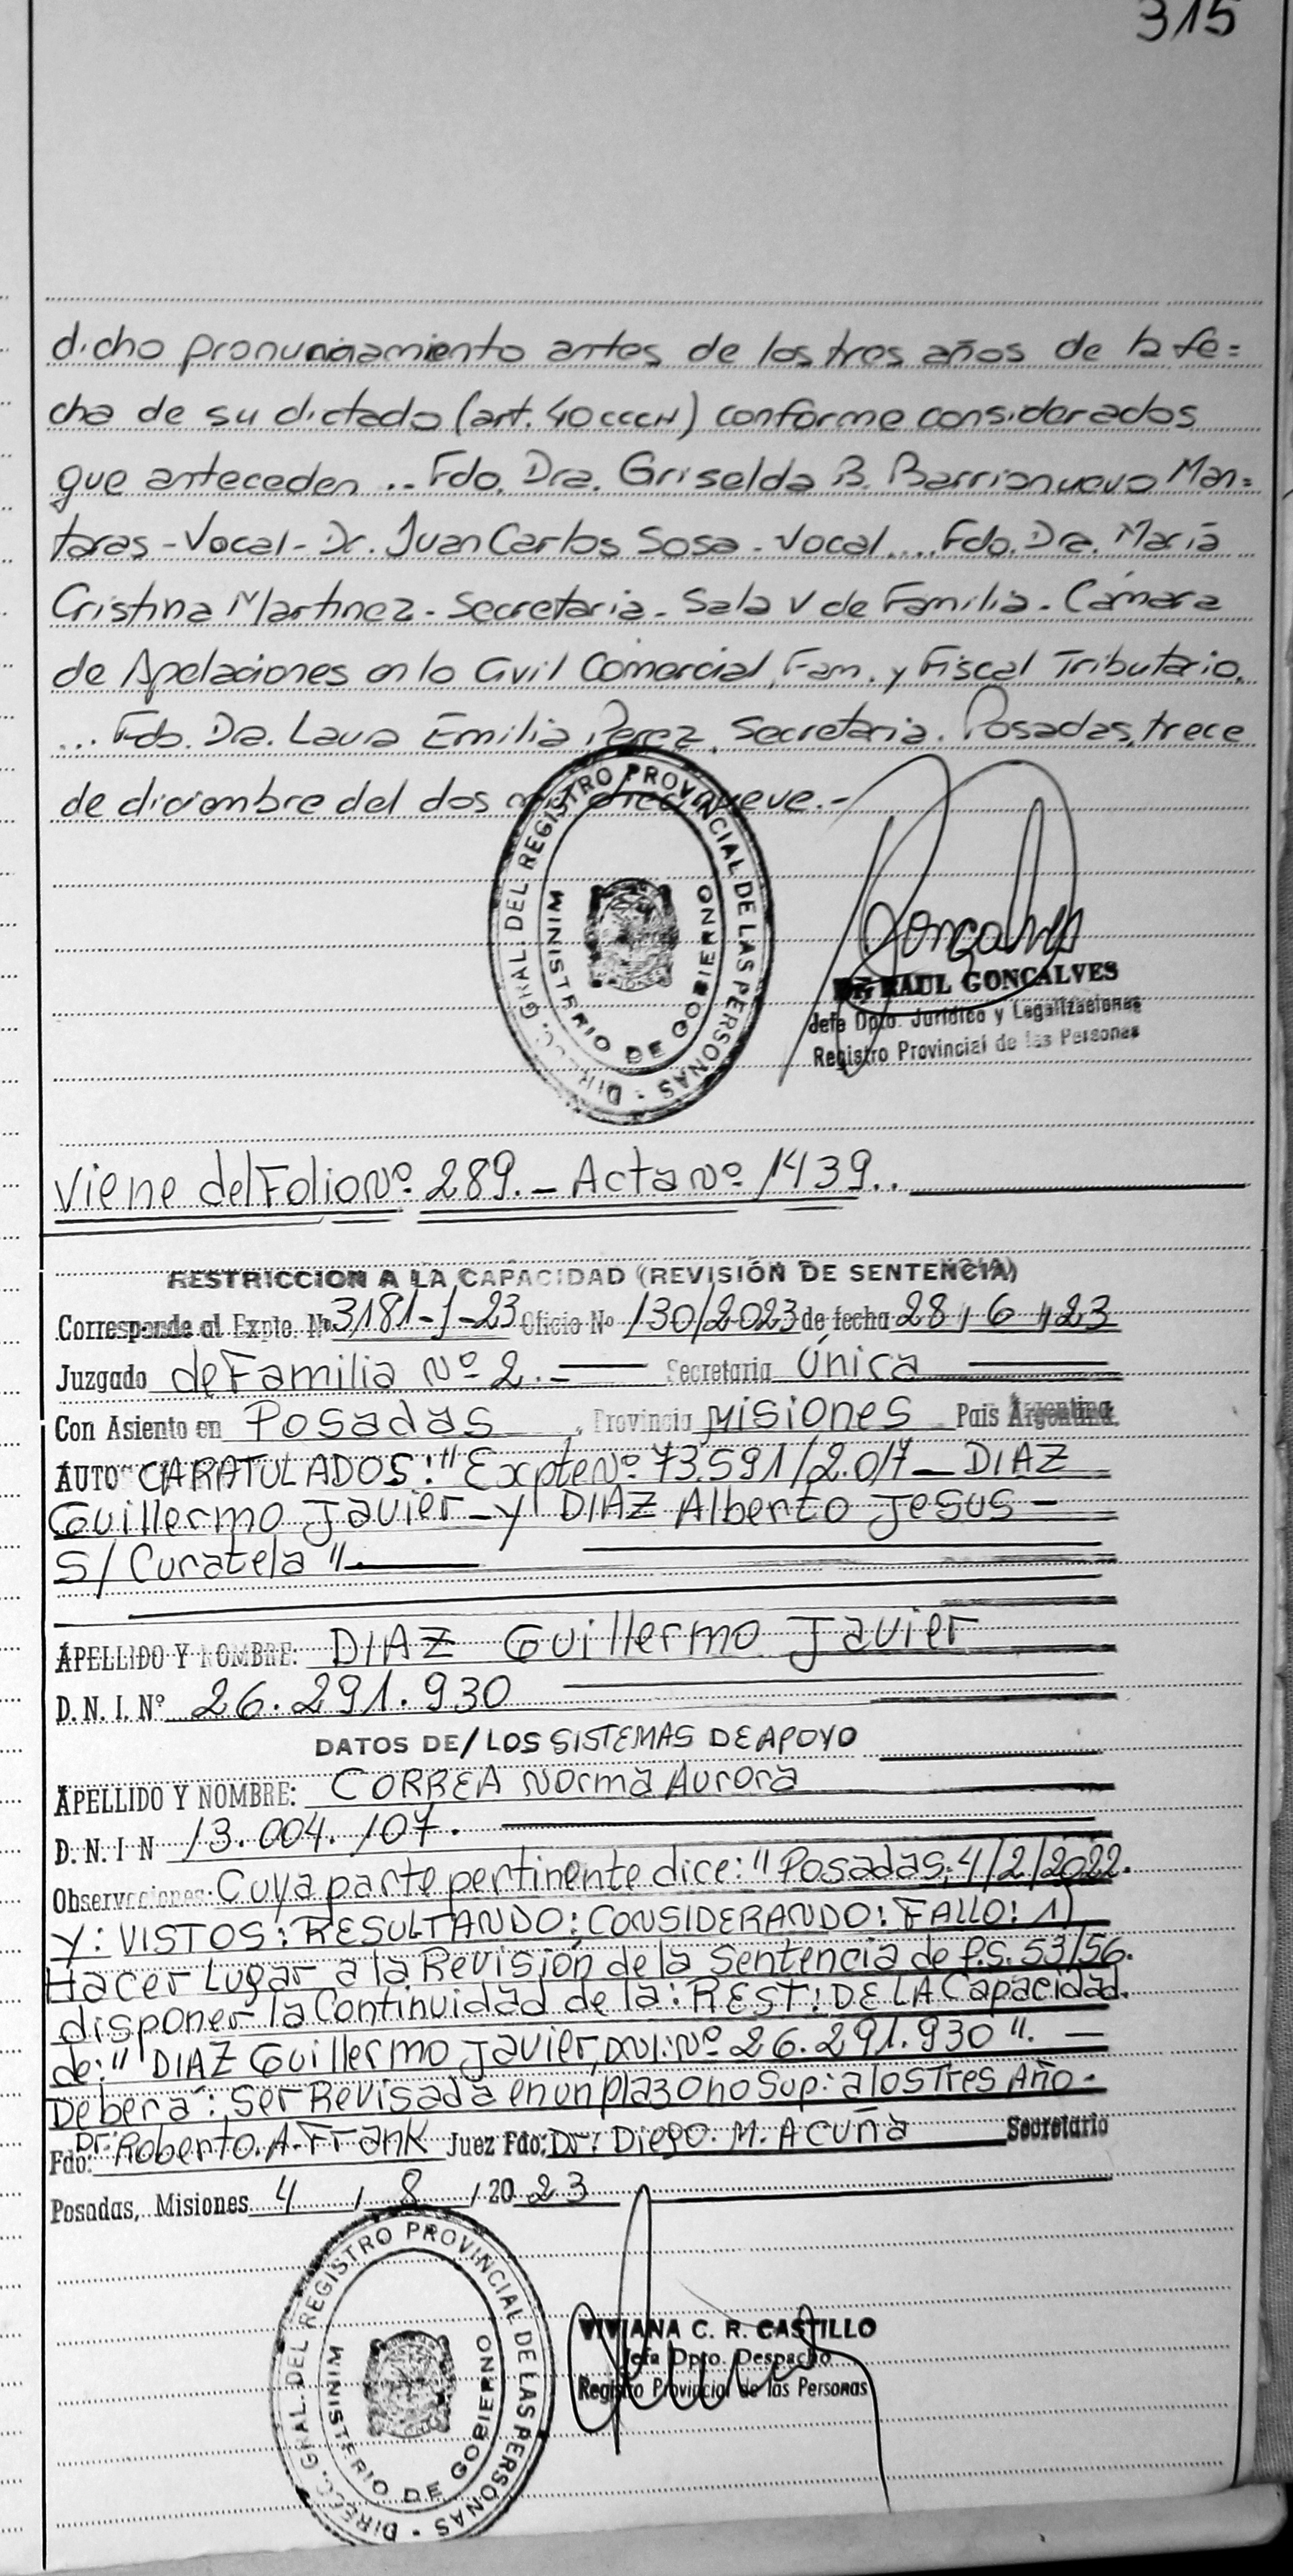 315
dicho pronunciamiento antes de los tres años de la fe=
cha de su dictado (art. 40 CCCN) conforme considerados
que anteceden... Fdo. Dra. Griselda B. Barrionuevo Man=
taras - Vocal - Dr. Juan Carlos Sosa - Vocal.... Fdo. Dra. María
Cristina Martinez - Secretaria - Sala V de Familia - Cámara
de Apelaciones en lo Civil Comercial, Fam. y Fiscal Tributario.
... Fdo. Dra. Laura Emilia Perez, Secretaria. Posadas, trece
de diciembre del dos mil diecinueve.-
DIRECC. GRAL. DEL REGISTRO PROVINCIAL DE LAS PERSONAS -
MINISTERIO DE GOBIERNO
Goncalves
Dr. RAUL GONCALVES
Jefe Dpto. Juridico y Legalizaciones
Registro Provincial de las Personas
Viene del Folio Nº 289. - Acta Nº 1439..
RESTRICCION A LA CAPACIDAD (REVISIÓN DE SENTENCIA)
Corresponde al Expte. Nº 3181-J-23 Oficio Nº 130/2023 de fecha 28/6/23
Juzgado de Familia Nº 2.- Secretaria Única
Con Asiento en Posadas, Provincia Misiones Pais Argentina
AUTO CARATULADOS: "Expte Nº 73.591/2.017 - DIAZ
Guillermo Javier - y DIAZ Alberto Jesus -
S/ Curatela".
APELLIDO Y NOMBRE: DIAZ Guillermo Javier
D. N. I. Nº 26.291.930
DATOS DE/LOS SISTEMAS DE APOYO
APELLIDO Y NOMBRE: CORREA Norma Aurora
D. N. I N 13.004.107.
Observaciones: Cuya parte pertinente dice: "Posadas, 4/2/2022.
Y: VISTOS: RESULTANDO: CONSIDERANDO: FALLO: 1)
Hacer Lugar a la Revisión de la Sentencia de f.s. 53/56.
disponer la Continuidad de la: REST: DE LA Capacidad.
de: "DIAZ Guillermo Javier, DNI: Nº 26.291.930".
Debera: Ser Revisada en un plazo no Sup: a los Tres Año.
Fdo: Dr: Roberto. A. Frank Juez Fdo: Dr: Diego. M. Acuña Secretario
Posadas, Misiones 4 / 8 / 20 23
DIRECC. GRAL. DEL REGISTRO PROVINCIAL DE LAS PERSONAS -
MINISTERIO DE GOBIERNO
VIVIANA C. R. CASTILLO
Jefa Dpto. Despacho
Registro Provincial de las Personas